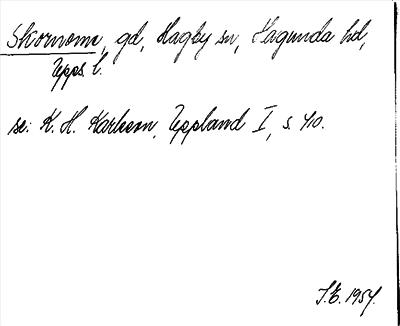 Skornome, gd, Hagby sn, Hagunda hd,
Upps. l.
se: K. H. Karlsson, Uppland I, s. 410.
S.E. 1954.